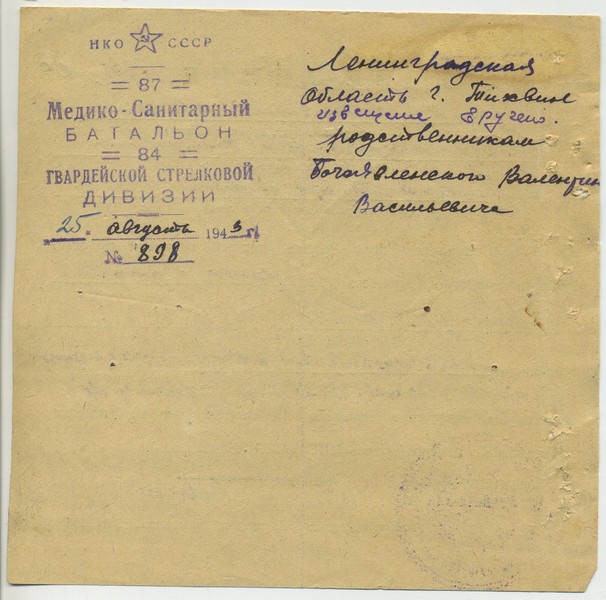 НКО СССР
= 87 =
Медико-Санитарный
БАТАЛЬОН
= 84 =
ГВАРДЕЙСКОЙ СТРЕЛКОВОЙ
ДИВИЗИИ
"25" августъ 1943 г.
№ 898
Ленинградская
Область г. Тихвин
извещение вручено.
родственникам
Богоявленского Валентин
Васильевича